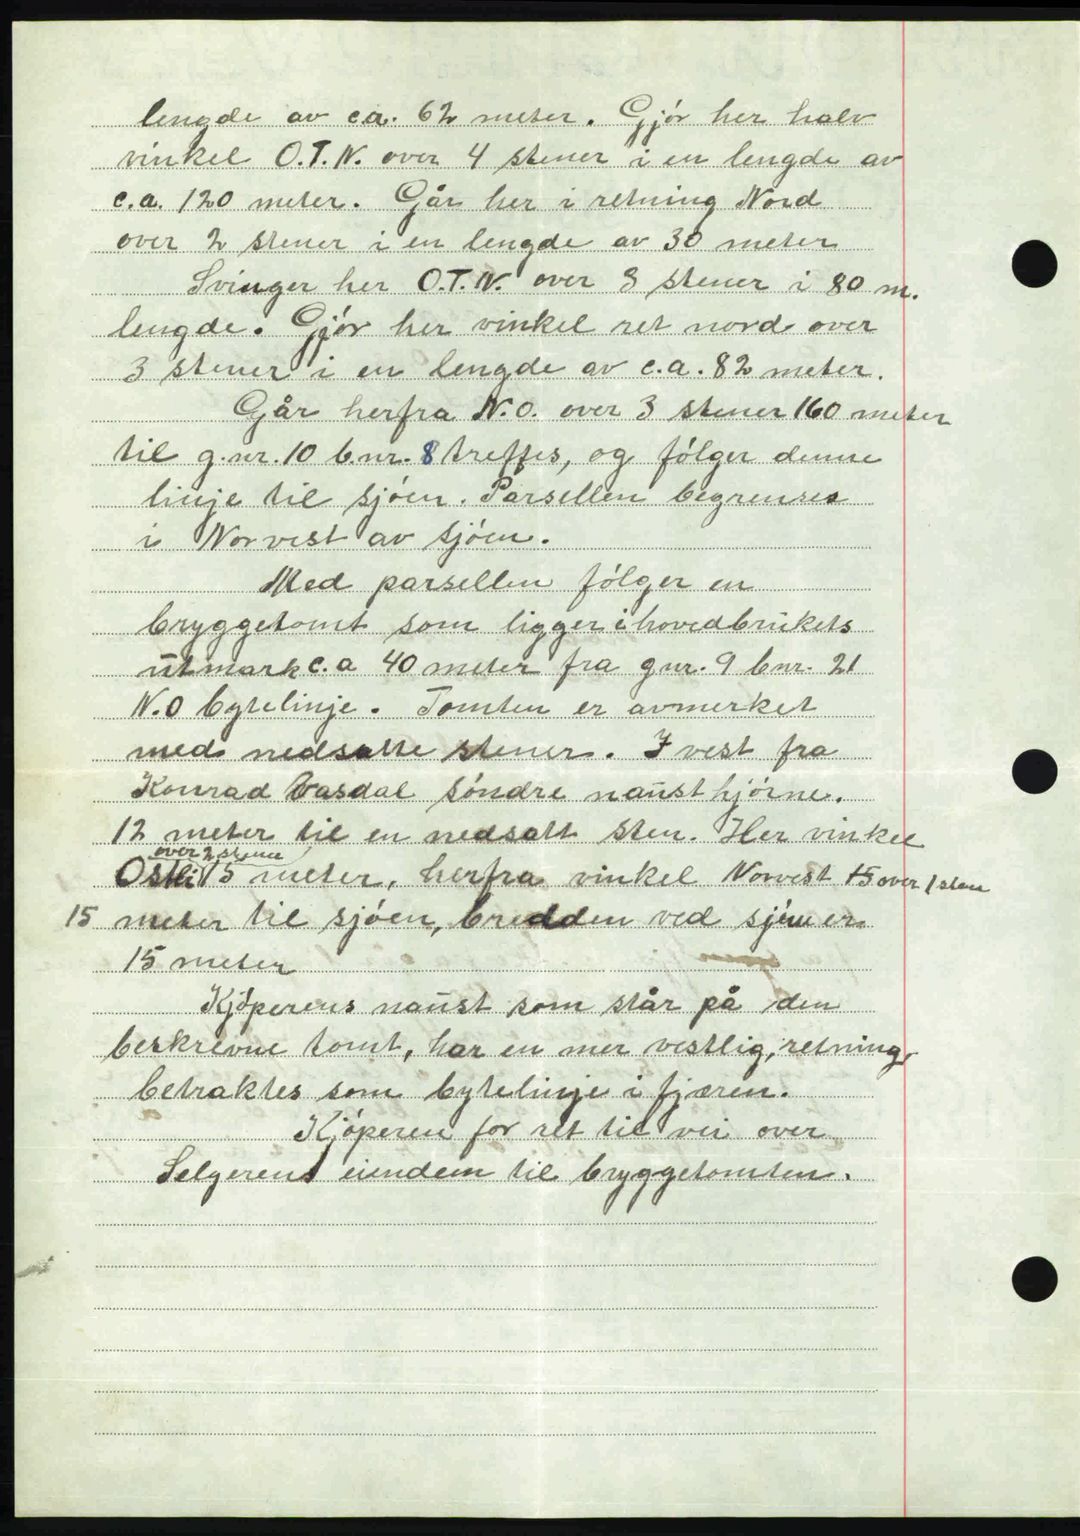 lengde av ca. 62 meter. Gjör her halv
vinkel O.T.N. over 4 stener i en lengde av
c.a. 120 meter. Går her i retning Nord
over 2 stener i en lengde av 30 meter
Svinger her O.T.N. over 3 stener i 80 m.
lengde. Gjör her vinkel ret nord over
3 stener i en lengde av c.a. 82 meter.
Går herfra N.O. over 3 stener 160 meter
til g.nr. 10 b.nr. 8 treffes, og fólger denne
linje til sjóen. Parsellen begrenses
i Norvest av sjóen.
Med parsellen fólger en
bryggetomt som ligger i hovedbrukets
utmark c.a 40 meter fra gnr. 9 bnr. 21
N.O bytelinje. Tomten er avmerket
med nedsatte stener. I vest fra
Konrad Vasdal söndre naust hjórne.
12 meter til en nedsatt sten. Her vinkel
over 2 stene
Ostli 15 meter, herfra vinkel Norvest 15 over 1 sten
15 meter til sjóen, bredden ved sjóen er
15 meter
Kjóperens naust som står på den
beskrevne tomt, har en mer vestlig, retning,
betraktes som bytelinje i fjæren.
Kjóperen for ret til vei over
Selgerens eiendem til bryggetomten.